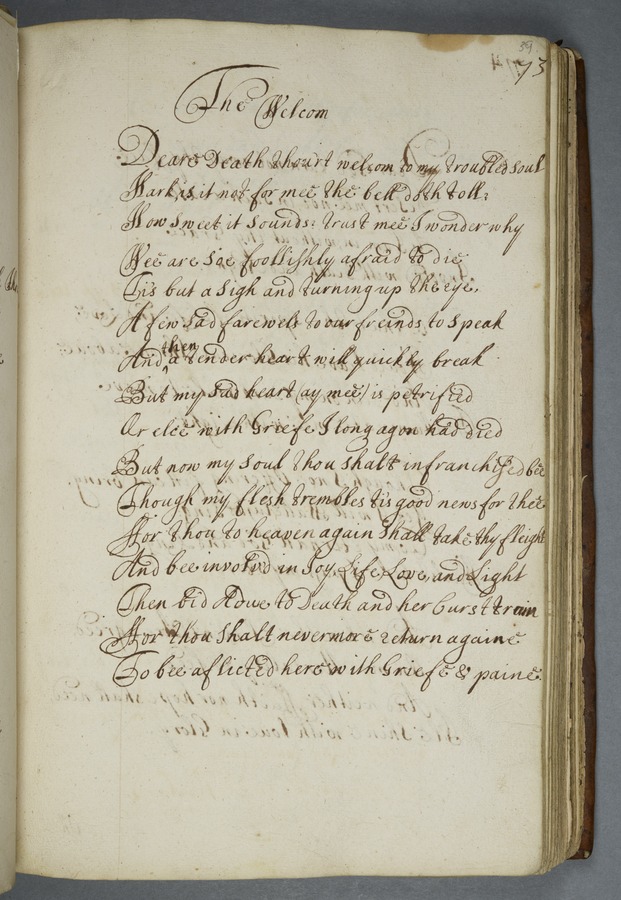 39
73
The Welcom
Deare Death thou'rt welcom to my troubled soul
Hark is it not for mee the bell doth toll:
How Sweet it Sounds: trust mee I wonder why
Wee are Soe foollishly afraid to die
Tis but a Sigh and turning up the eye,
A few Sad farewels to our freinds to Speak
then
And a tender heart will quickly break
But my Sad heart (ay mee) is petrified
Or elce with Griefe I long agon had died
But now my Soul thou Shalt infranchised bee
Though my flesh trembles tis good news for thee
For thou to heaven again Shall take thy fleight
And bee involv'd in Joy, Life, Love, and Light
Then bid Adue to Death and her Curst train
For thou Shalt nevermore return againe
To bee aflicted here with Griefe & paine